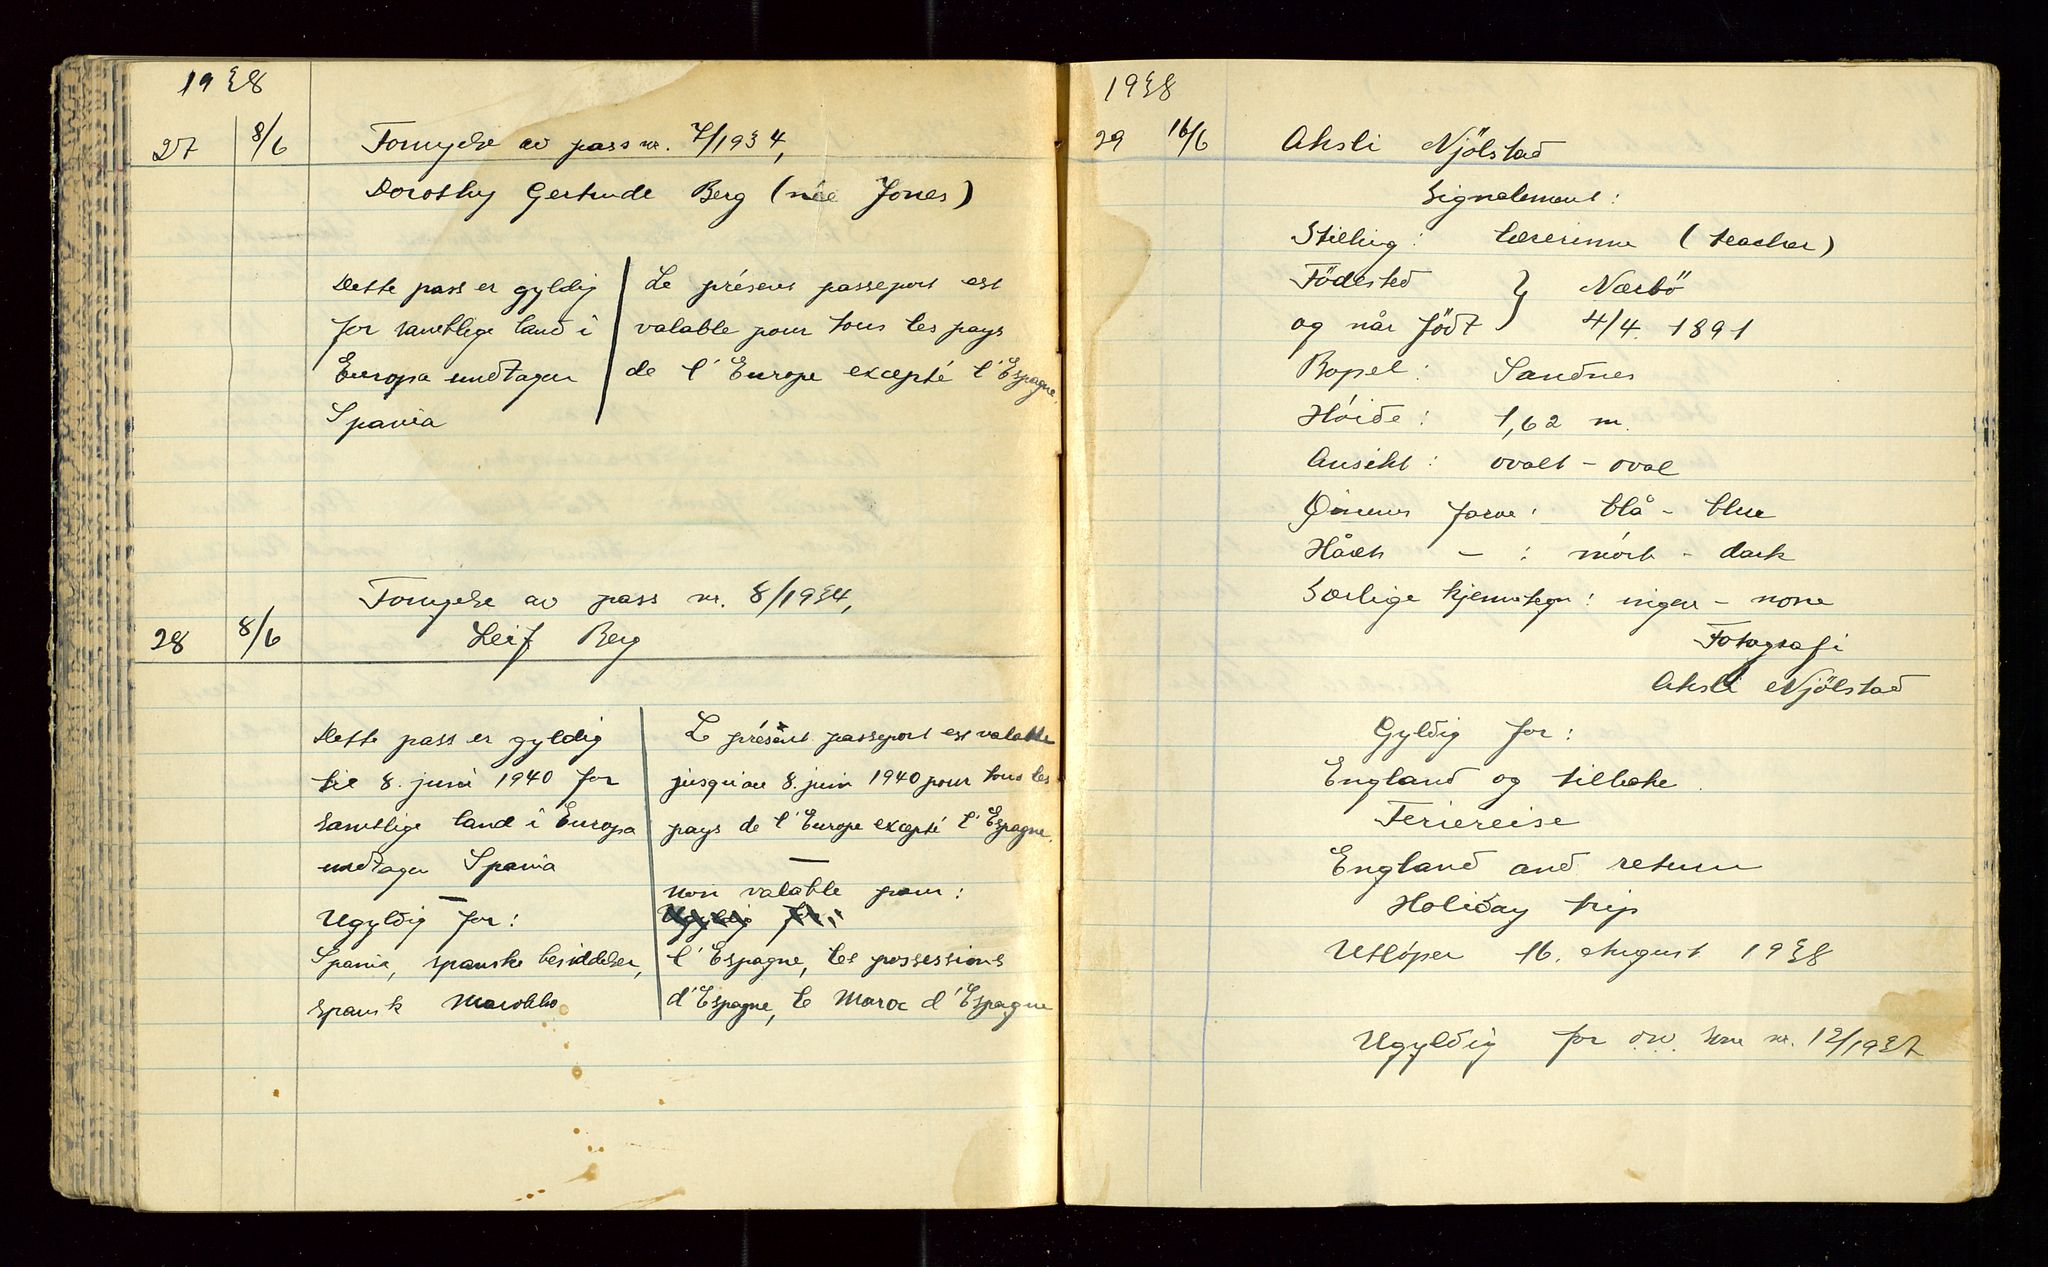 1938
27 8/6 Fornyelse av pass nr. 7/1934,
Dorothy Gertrude Berg (née Jones)
Dette pass er gyldig
for samtlige land i
Europa undtagen
Spania
Le présent passeport est
valable pour tous les pays
de l'Europe excepté l'Espagne.
Fornyelse av pass nr. 8/1934,
28 8/6 Leif Berg
Dette pass er gyldig
til 8. juni 1940 for
samtlige land i Europa
undtagen Spania
—
Ugyldig for:
Spania, spanske besiddelser,
spansk Marokko
Le présent passeport est valable
jusqu'au 8. juin 1940 pour tous les
pays de l'Europe excepté l'Espagne.
—
non valable pour:
Ugyldig for:
l'Espagne, les possessions
d'Espagne, le Maroc d'Espagne
1938
29 16/6 Aksli Njölstad
Signalement:
Stilling: lærerinne (teacher)
Födested } Nærbö
og når födt } 4/4. 1891
Bopel: Sandnes
Höide: 1,62 m.
Ansikt: ovalt - oval
Öinenes farve: blå - blue
Hårets — : mörk - dark
Særlige kjennetegn: ingen - none
Fotografi
Aksli Njölstad
Gyldig for:
England og tilbake.
Feriereise
England and return
Holiday trip
Utlöper 16. August 1938
Ugyldig for o.s.v. som nr. 12/1937